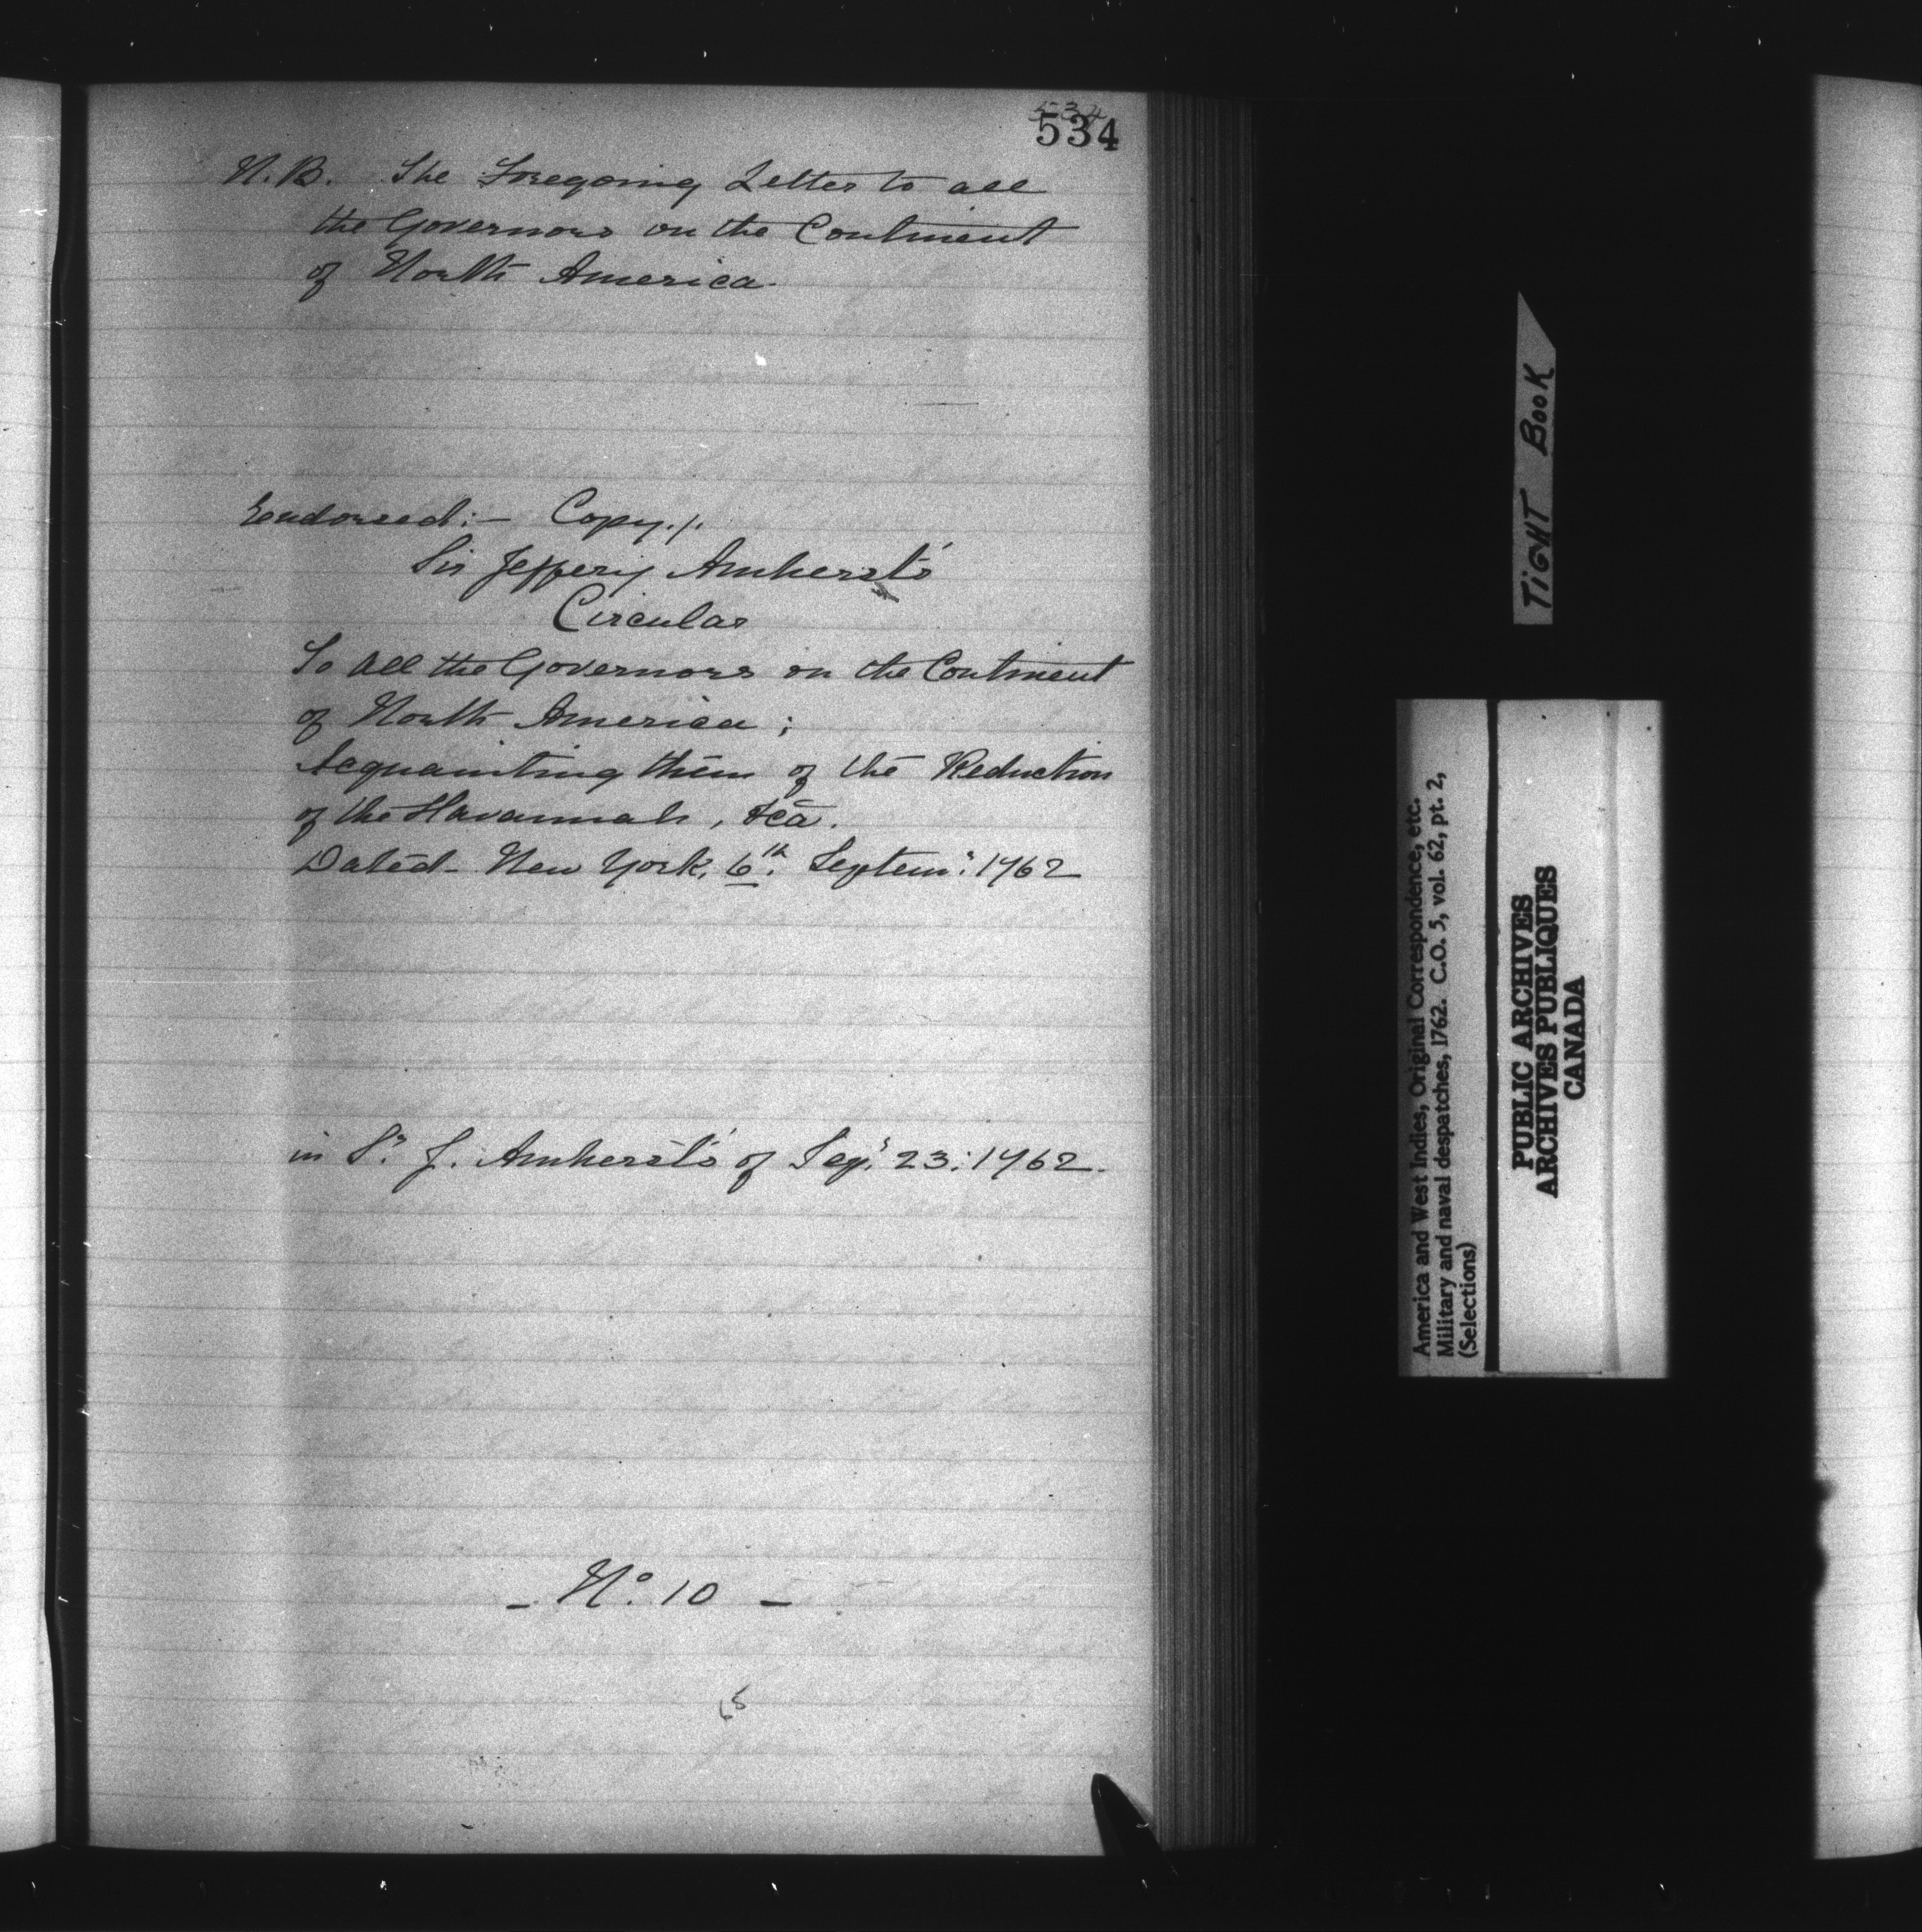 534
534
N.B. The Foregoing Letter to all
the Governors on the Continent
of North America.
Endorsed:- Copy./.
Sir Jeffery Amherst's
Circular
To all the Governors on the Continent
of North America;
Acquainting them of the Reduction
of the Havannah, &ca.
Dated - New York, 6th. Septemr: 1762
in Sr. J. Amherst's of Sepr. 23: 1762.
- No. 10 -
65
TIGHT BOOK
America and West Indies, Original Correspondence, etc.
Military and naval despatches, 1762. C.O. 5, vol. 62, pt. 2,
(Selections)
PUBLIC ARCHIVES
ARCHIVES PUBLIQUES
CANADA